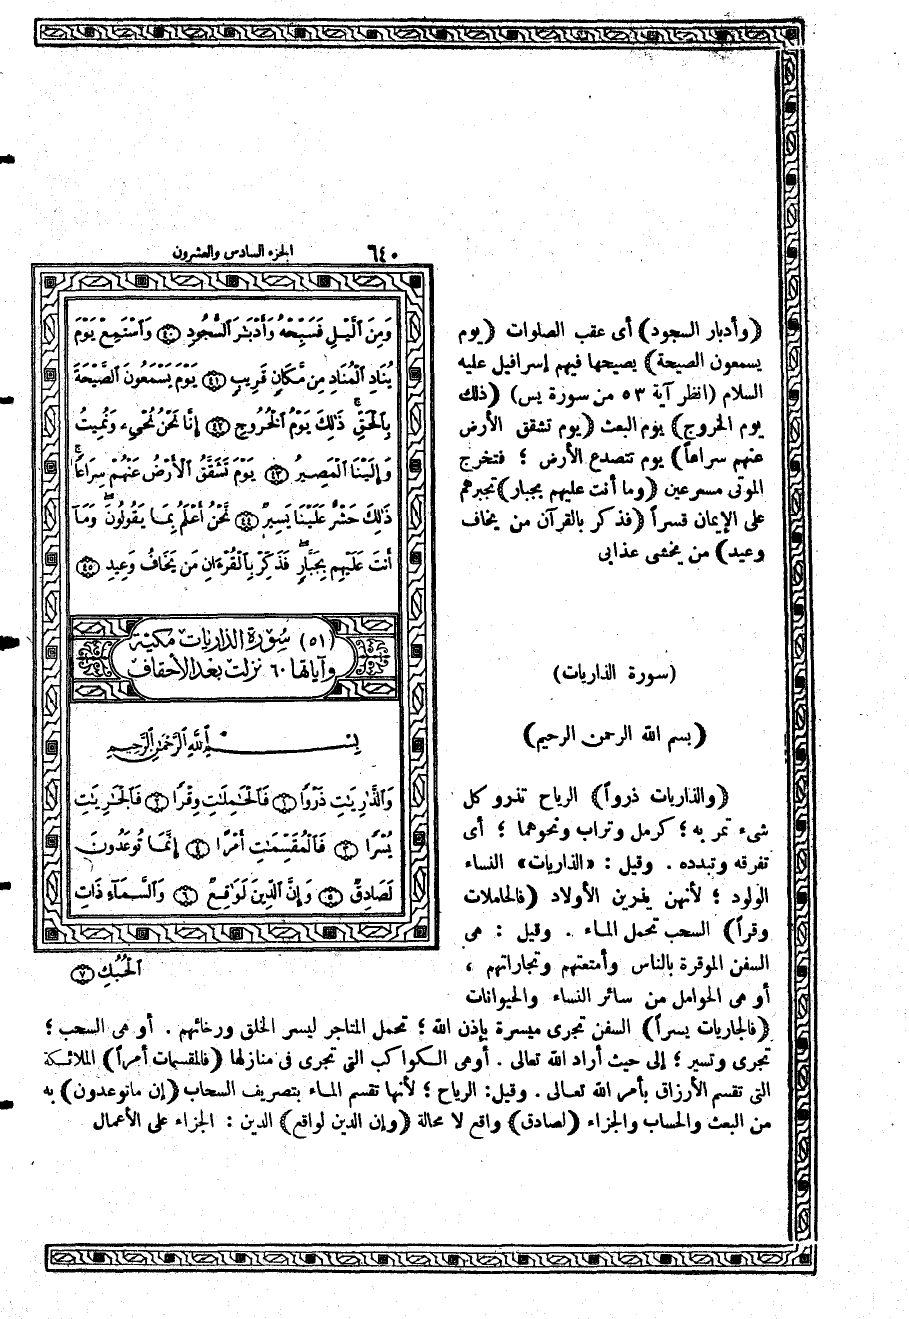 ٦٤٠ الجزء السادس والعشرون
وَمِنَ ٱلَّيْلِ فَسَبِّحْهُ وَأَدْبَٰرَ ٱلسُّجُودِ ﴿٤٠﴾ وَٱسْتَمِعْ يَوْمَ
يُنَادِ ٱلْمُنَادِ مِن مَّكَانٍ قَرِيبٍ ﴿٤١﴾ يَوْمَ يَسْمَعُونَ ٱلصَّيْحَةَ
بِٱلْحَقِّ ۚ ذَٰلِكَ يَوْمُ ٱلْخُرُوجِ ﴿٤٢﴾ إِنَّا نَحْنُ نُحْىِۦ وَنُمِيتُ
وَإِلَيْنَا ٱلْمَصِيرُ ﴿٤٣﴾ يَوْمَ تَشَقَّقُ ٱلْأَرْضُ عَنْهُمْ سِرَاعًا ۚ
ذَٰلِكَ حَشْرٌ عَلَيْنَا يَسِيرٌ ﴿٤٤﴾ نَّحْنُ أَعْلَمُ بِمَا يَقُولُونَ ۖ وَمَآ
أَنتَ عَلَيْهِم بِجَبَّارٍ ۖ فَذَكِّرْ بِٱلْقُرْءَانِ مَن يَخَافُ وَعِيدِ ﴿٤٥﴾
(٥١) سورة الذاريات مكية
وآياتها ٦٠ نزلت بعد الأحقاف
بِسْمِ ٱللَّهِ ٱلرَّحْمَٰنِ ٱلرَّحِيمِ
وَٱلذَّٰرِيَٰتِ ذَرْوًا ﴿١﴾ فَٱلْحَٰمِلَٰتِ وِقْرًا ﴿٢﴾ فَٱلْجَٰرِيَٰتِ
يُسْرًا ﴿٣﴾ فَٱلْمُقَسِّمَٰتِ أَمْرًا ﴿٤﴾ إِنَّمَا تُوعَدُونَ
لَصَادِقٌ ﴿٥﴾ وَإِنَّ ٱلدِّينَ لَوَٰقِعٌ ﴿٦﴾ وَٱلسَّمَآءِ ذَاتِ
ٱلْحُبُكِ ﴿٧﴾
(وأدبار السجود) أى عقب الصلوات (يوم
يسمعون الصيحة) يصيحها فيهم إسرافيل عليه
السلام (انظر آية ٥٣ من سورة يس) (ذلك
يوم الخروج) يوم البعث (يوم تشقق الأرض
عنهم سراعاً) يوم تتصدع الأرض ؛ فتخرج
الموتى مسرعين (وما أنت عليهم بجبار) تجبرهم
على الإيمان قسراً (فذكر بالقرآن من يخاف
وعيد) من يخشى عذابى
(سورة الذاريات)
(بسم الله الرحمن الرحيم)
(والذاريات ذروا) الرياح تذرو كل
شىء تمر به ؛ كرمل وتراب ونحوهما ؛ أى
تفرقه وتبدده . وقيل : «الذاريات» النساء
الولود ؛ لأنهن يذرين الأولاد (فالحاملات
وقراً) السحب تحمل الماء . وقيل : هى
السفن الموقرة بالناس وأمتعتهم وتجاراتهم ،
أو هى الحوامل من سائر النساء والحيوانات
(فالجاريات يسراً) السفن تجرى ميسرة بإذن الله ؛ تحمل المتاجر ليسر الخلق ورخائهم . أو هى السحب ؛
تجرى وتسير ؛ إلى حيث أراد الله تعالى . أو هى الكواكب التى تجرى فى منازلها (فالمقسمات أمراً) الملائكة
التى تقسم الأرزاق بأمر الله تعالى . وقيل: الرياح ؛ لأنها تقسم الماء بتصريف السحاب (إن ماتوعدون) به
من البعث والحساب والجزاء (لصادق) واقع لا محالة (وإن الدين لواقع) الدين : الجزاء على الأعمال